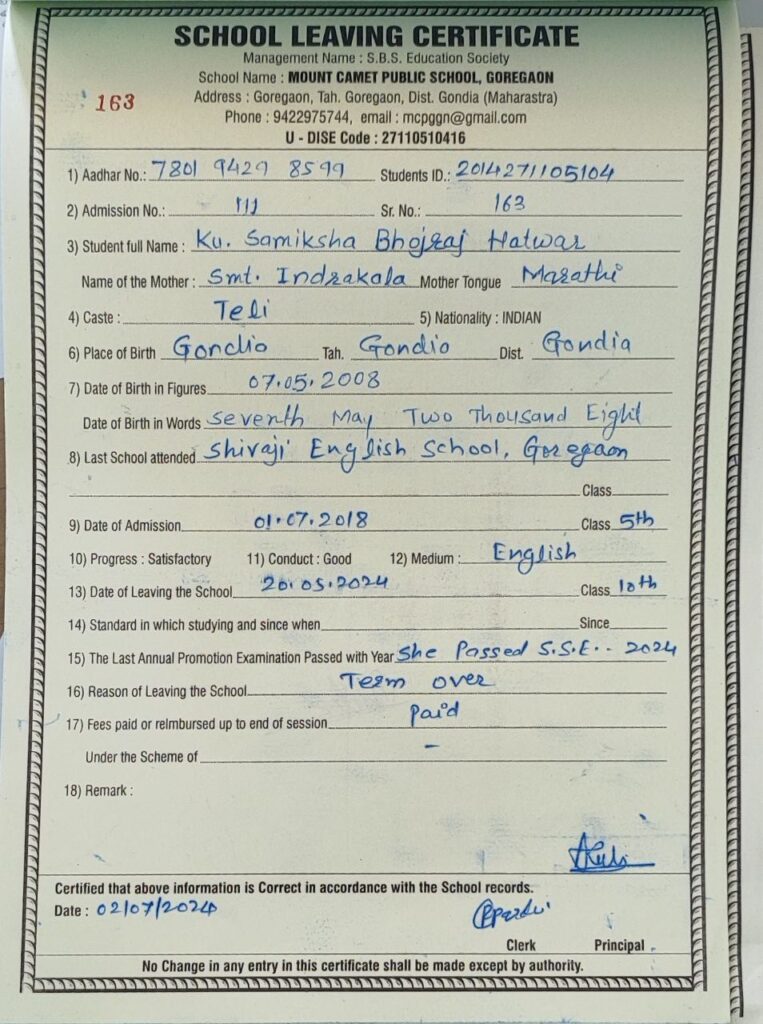 SCHOOL LEAVING CERTIFICATE
Management Name : S.B.S. Education Society
School Name : MOUNT CAMET PUBLIC SCHOOL, GOREGAON
163 Address : Goregaon, Tah. Goregaon, Dist. Gondia (Maharastra)
Phone : 9422975744, email : mcpggn@gmail.com
U - DISE Code : 27110510416
1) Aadhar No.: 7801 9429 8599 Students ID.: 2014271105104
2) Admission No.: 111 Sr. No.: 163
3) Student full Name : Ku. Samiksha Bhojraj Hatwar
Name of the Mother : Smt. Indrakala Mother Tongue Marathi
4) Caste : Teli 5) Nationality : INDIAN
6) Place of Birth Gondia Tah. Gondia Dist. Gondia
7) Date of Birth in Figures 07.05.2008
Date of Birth in Words seventh May Two Thousand Eight
8) Last School attended Shivaji English School, Goregaon
Class
9) Date of Admission 01.07.2018 Class 5th
10) Progress : Satisfactory 11) Conduct : Good 12) Medium : English
13) Date of Leaving the School 20.05.2024 Class 10th
14) Standard in which studying and since when Since
15) The Last Annual Promotion Examination Passed with Year She Passed S.S.E.. 2024
16) Reason of Leaving the School Term over
17) Fees paid or reimbursed up to end of session Paid
Under the Scheme of -
18) Remark :
Certified that above information is Correct in accordance with the School records.
Date : 02/07/2024
Clerk Principal
No Change in any entry in this certificate shall be made except by authority.